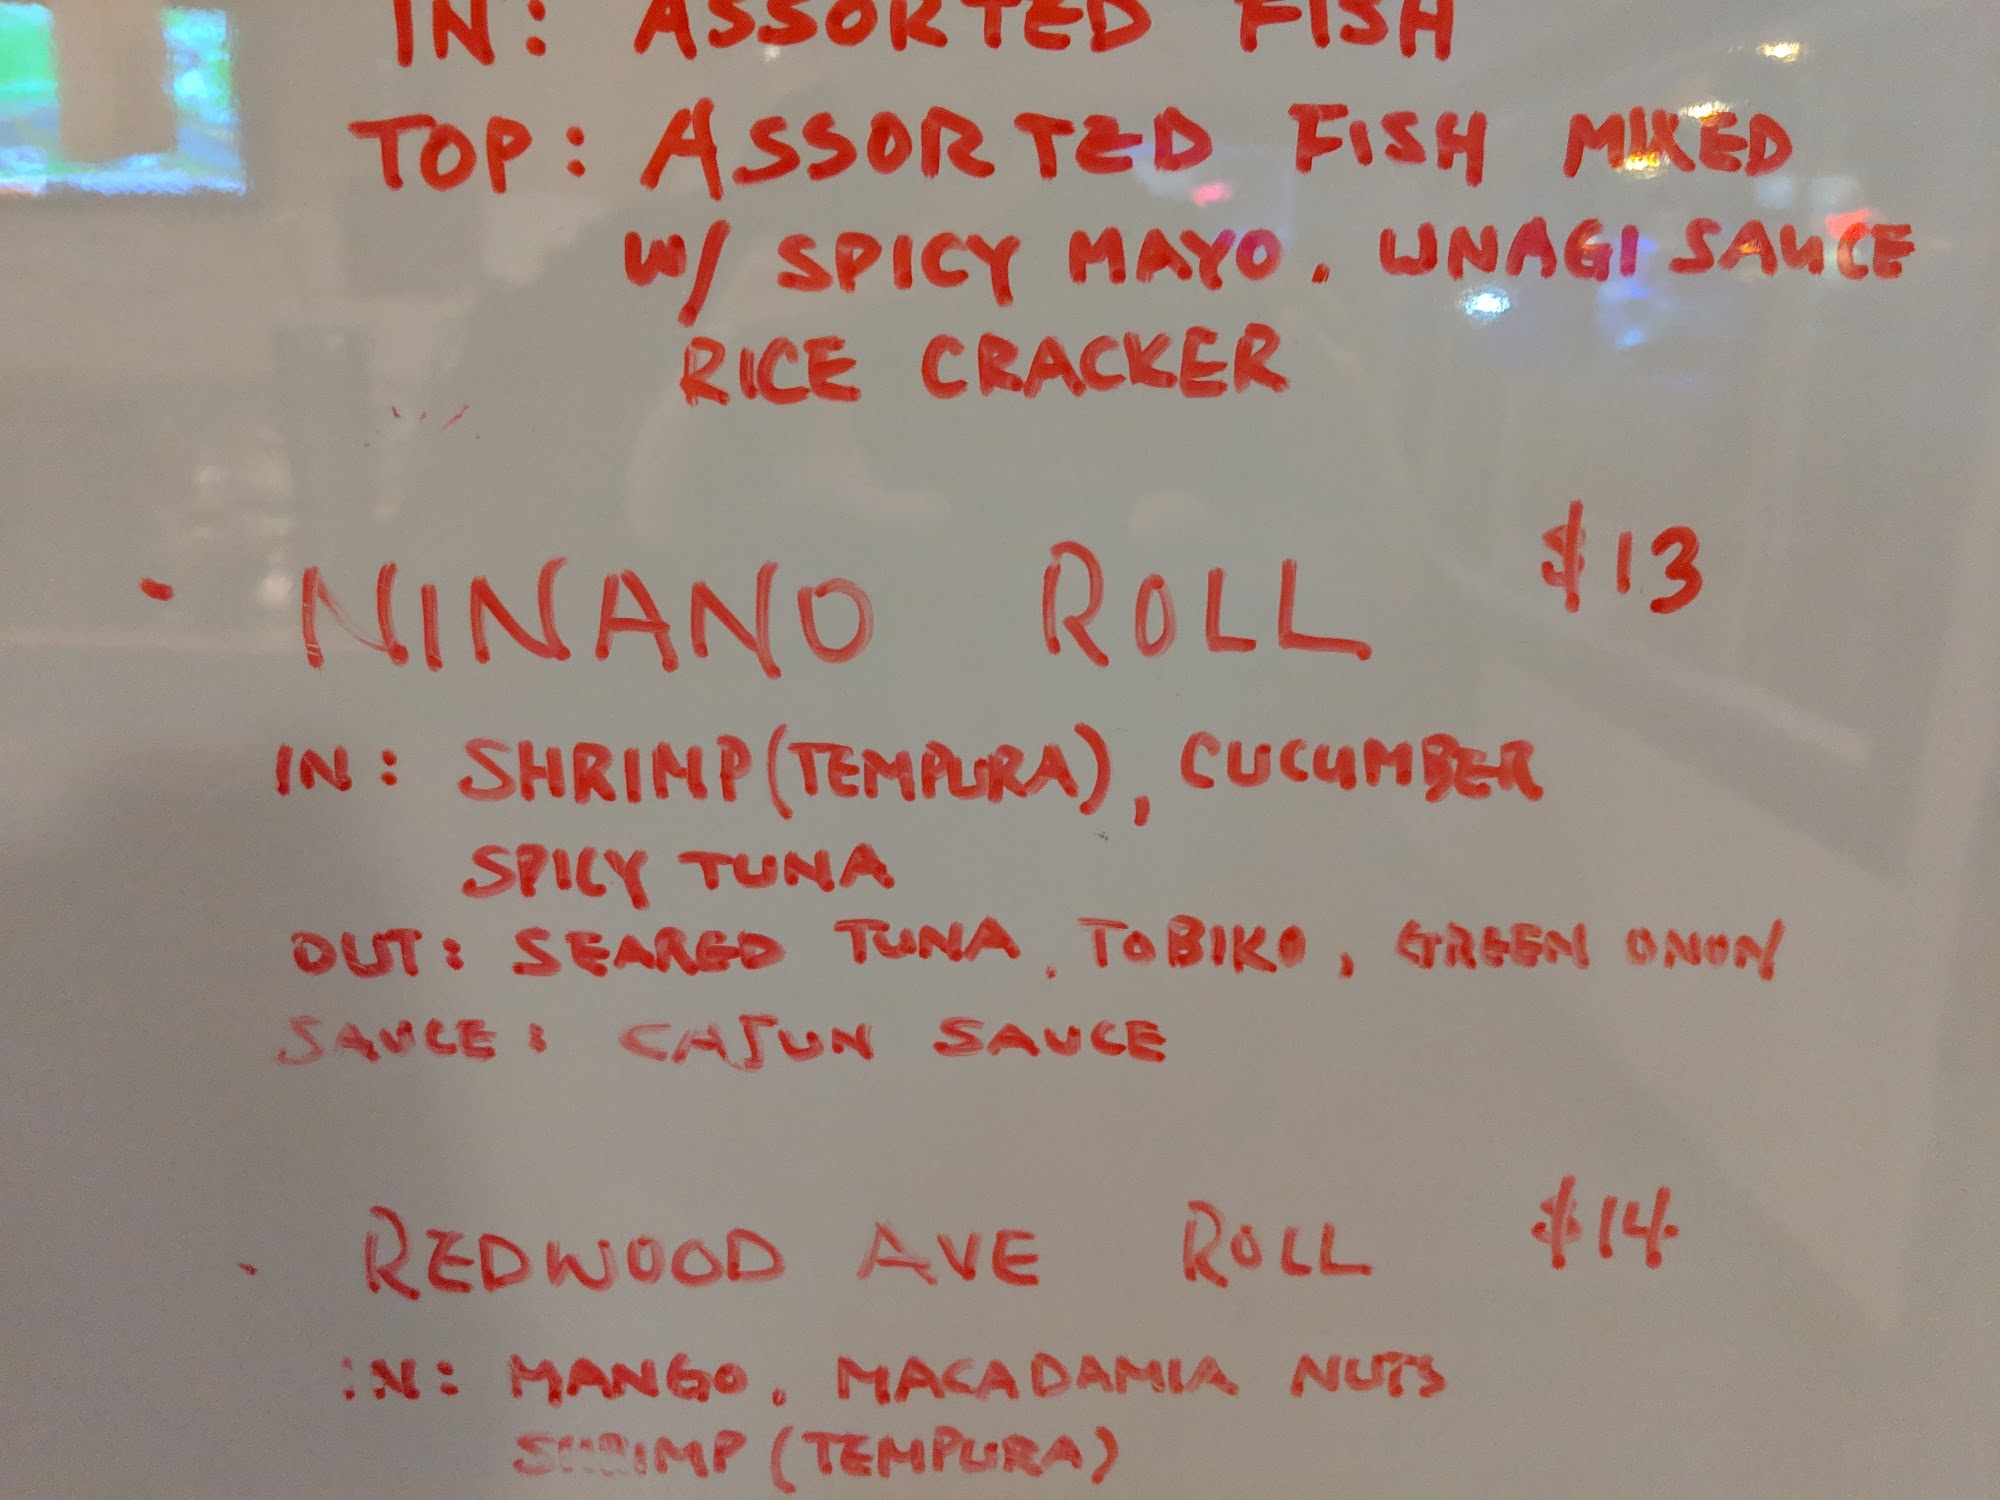 IN: ASSORTED FISH
TOP: ASSORTED FISH MIXED
W/ SPICY MAYO. UNAGI SAUCE
RICE CRACKER
· NINANO ROLL $13
IN: SHRIMP (TEMPURA), CUCUMBER
SPICY TUNA
OUT: SEARED TUNA, TOBIKO, GREEN ONION
SAUCE: CAJUN SAUCE
· REDWOOD AVE ROLL $14
IN: MANGO. MACADAMIA NUTS
SHRIMP (TEMPURA)